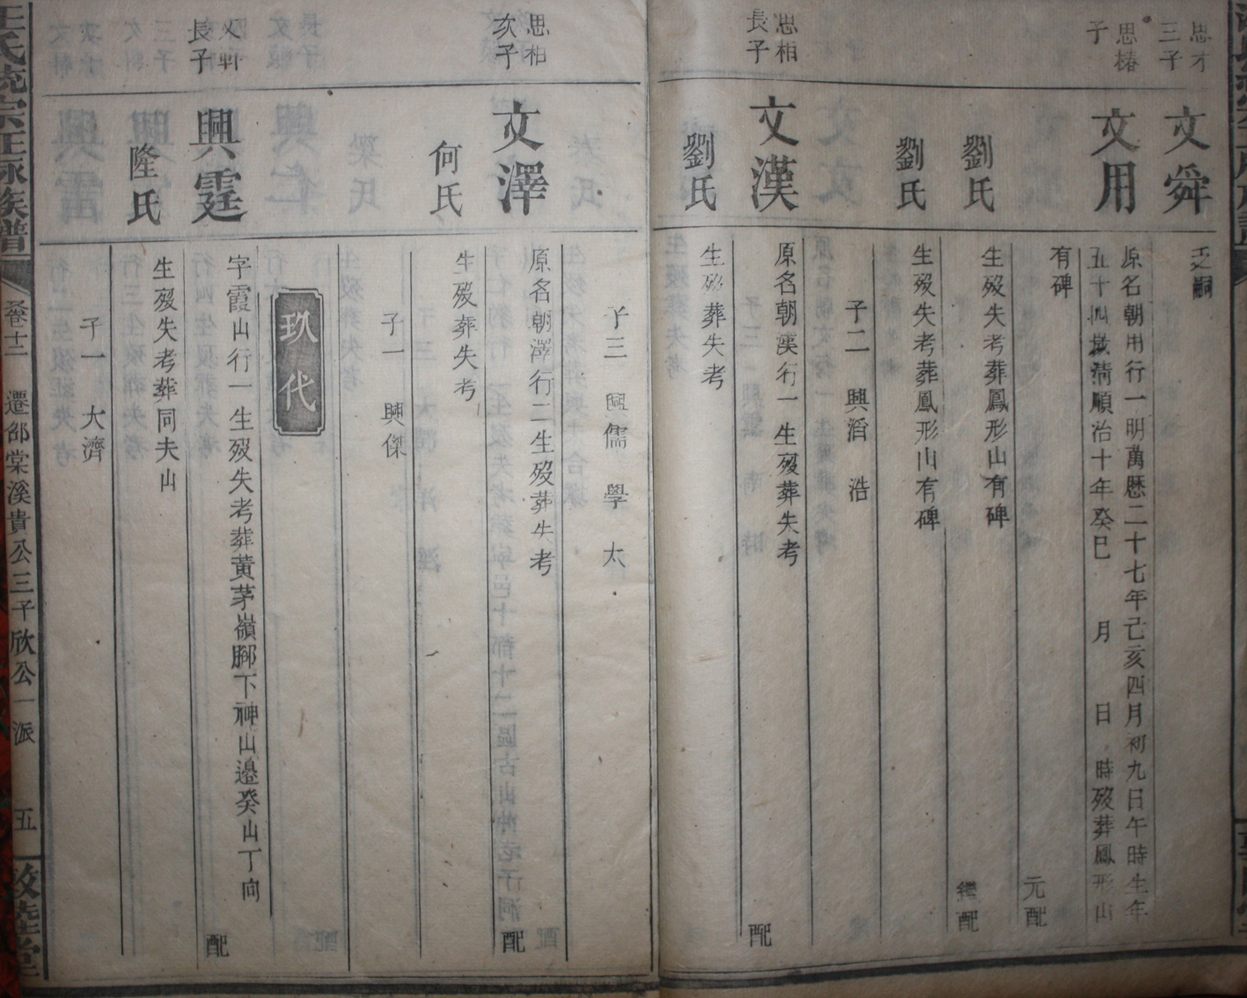 思才
三子
文舜
乏嗣
思椿
子
文用
原名朝用行一明萬歷二十七年己亥四月初九日午時生年
五十四歲清順治十年癸巳 月 日 時歿葬鳳形山
有碑
元配
劉氏
生歿失考葬鳳形山有碑
繼配
劉氏
生歿失考葬鳳形山有碑
子二 興滔 浩
思柏
長子
文漢
原名朝漢行一生歿葬失考
配
劉氏
生歿葬失考
子三 興儒 學 太
思柏
次子
文澤
原名朝澤行二生歿葬失考
配
何氏
生歿葬失考
子一 興傑
玖代
文軒
長子
興霆
字霞山行一生歿失考葬黃茅嶺腳下神山邊癸山丁向
配
隆氏
生歿失考葬同夫山
子一 大濟
汪氏統宗正脉族譜
卷十二 遷邵棠溪貴公三子欣公一派 五
敦睦堂